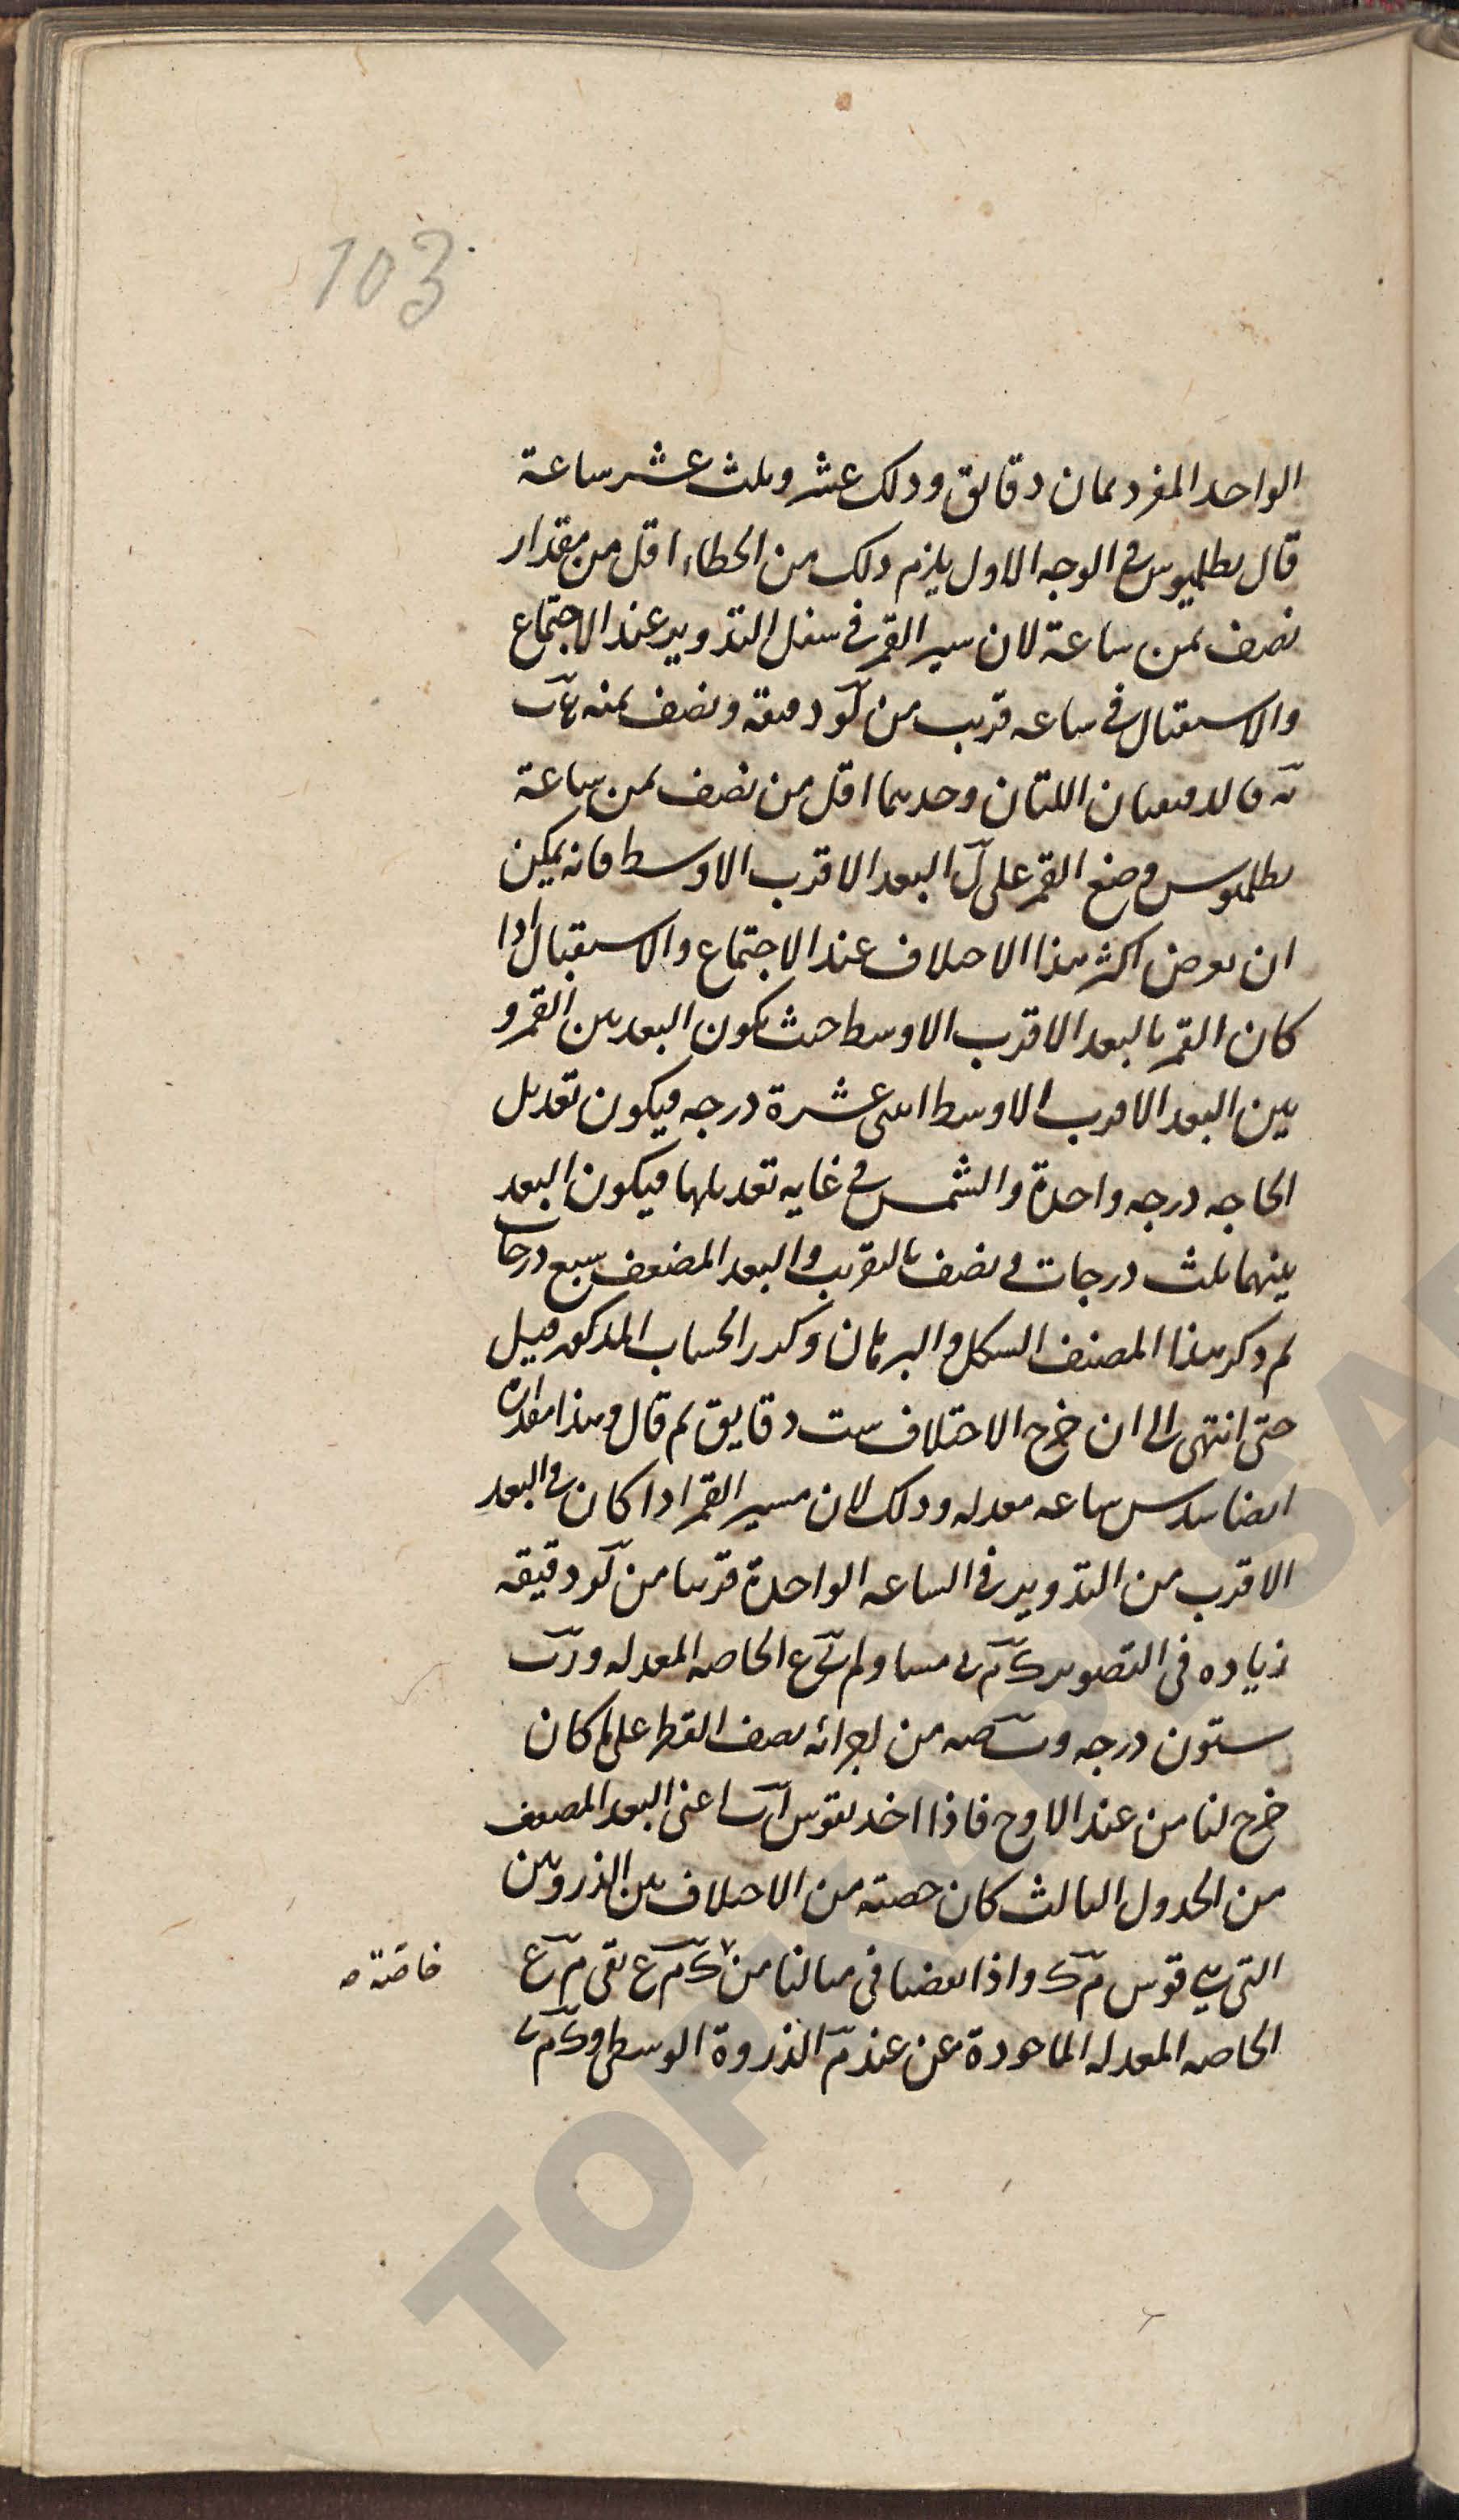 103
الواحد المفرد ثمان دقايق وذلك عشر وثلث عشر ساعة
قال بطلميوس فى الوجه الاول يلزم ذلك من الخطاء اقل من مقدار
نصف ثمن ساعة لان سير القمر فى سفل التدوير عند الاجتماع
والاستقبال فى ساعه قريب من لو دقيقة ونصف ثمنه
فالدقيقتان اللتان وجدهما اقل من نصف ثمن ساعة
بطلميوس وضع القمر على ل البعد الاقرب الاوسط فانه يمكن
ان يعرض اكثر هذا الاختلاف عند الاجتماع والاستقبال اذا
كان القمر بالبعد الاقرب الاوسط حيث يكون البعد بين القمر و
بين البعد الاقرب الاوسط اثنى عشرة درجه فيكون تعديل
الخاصه درجه واحدة والشمس فى غايه تعديلها فيكون البعد
بينهما ثلث درجات ونصف بالتقريب والبعد المضعف سبع درجات
ثم ذكر هذا المصنف الشكل والبرهان وكرر الحساب المذكور قبل
حتى انتهى الى ان خرج الاختلاف ست دقايق ثم قال وهذا مقداره
ايضا سدس ساعه معدله وذلك لان مسير القمر اذا كان فى البعد
الاقرب من التدوير فى الساعه الواحدة قريبا من لو دقيقه
زياده فى التصوير الخاصه المعدله
ستون درجه من اجزائه نصف القطر على كان
خرج لنا من عند الاوج فاذا اخذ بقوس اب اعنى البعد المضعف
من الجدول الثالث كان حصته من الاختلاف بين الذروتين
التى هى قوس مك واذا نقصنا فى مثالنا من كمع بقى مع
خاصة ه
الخاصه المعدله الماخوذة من عند م الذروة الوسطى